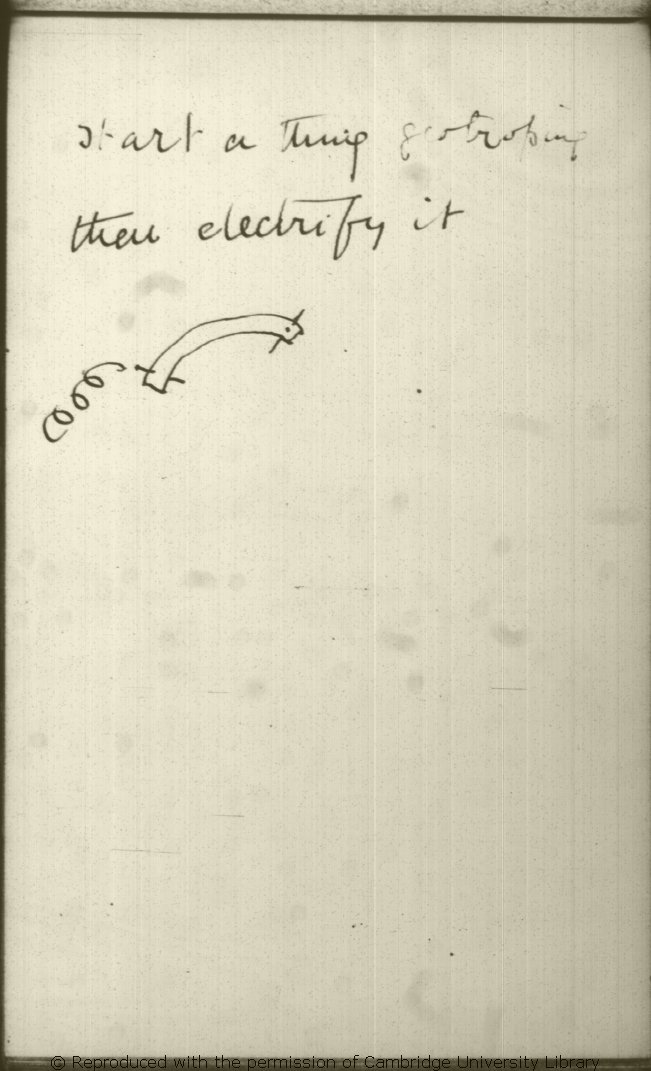 start a thing geotroping
then electrify it
© Reproduced with the permission of Cambridge University Library